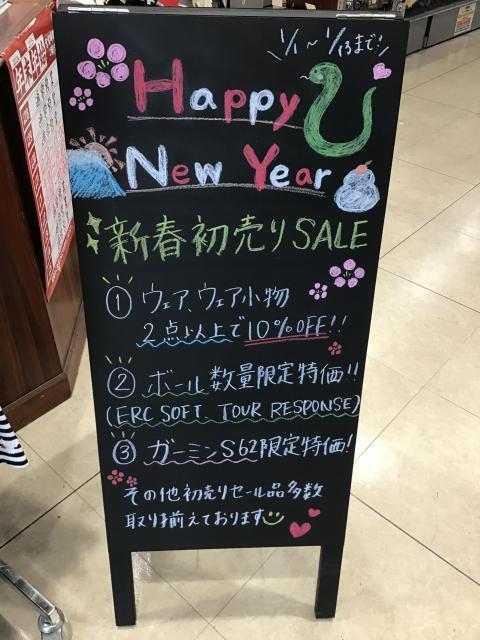 1/1~1/13まで
Happy
New Year
新春初売りSALE
① ウェア、ウェア小物
2点以上で10%OFF!!
② ボール数量限定特価!!
(ERC SOFT, TOUR RESPONSE)
③ ガーミンS62限定特価!
その他初売りセール品多数
取り揃えております